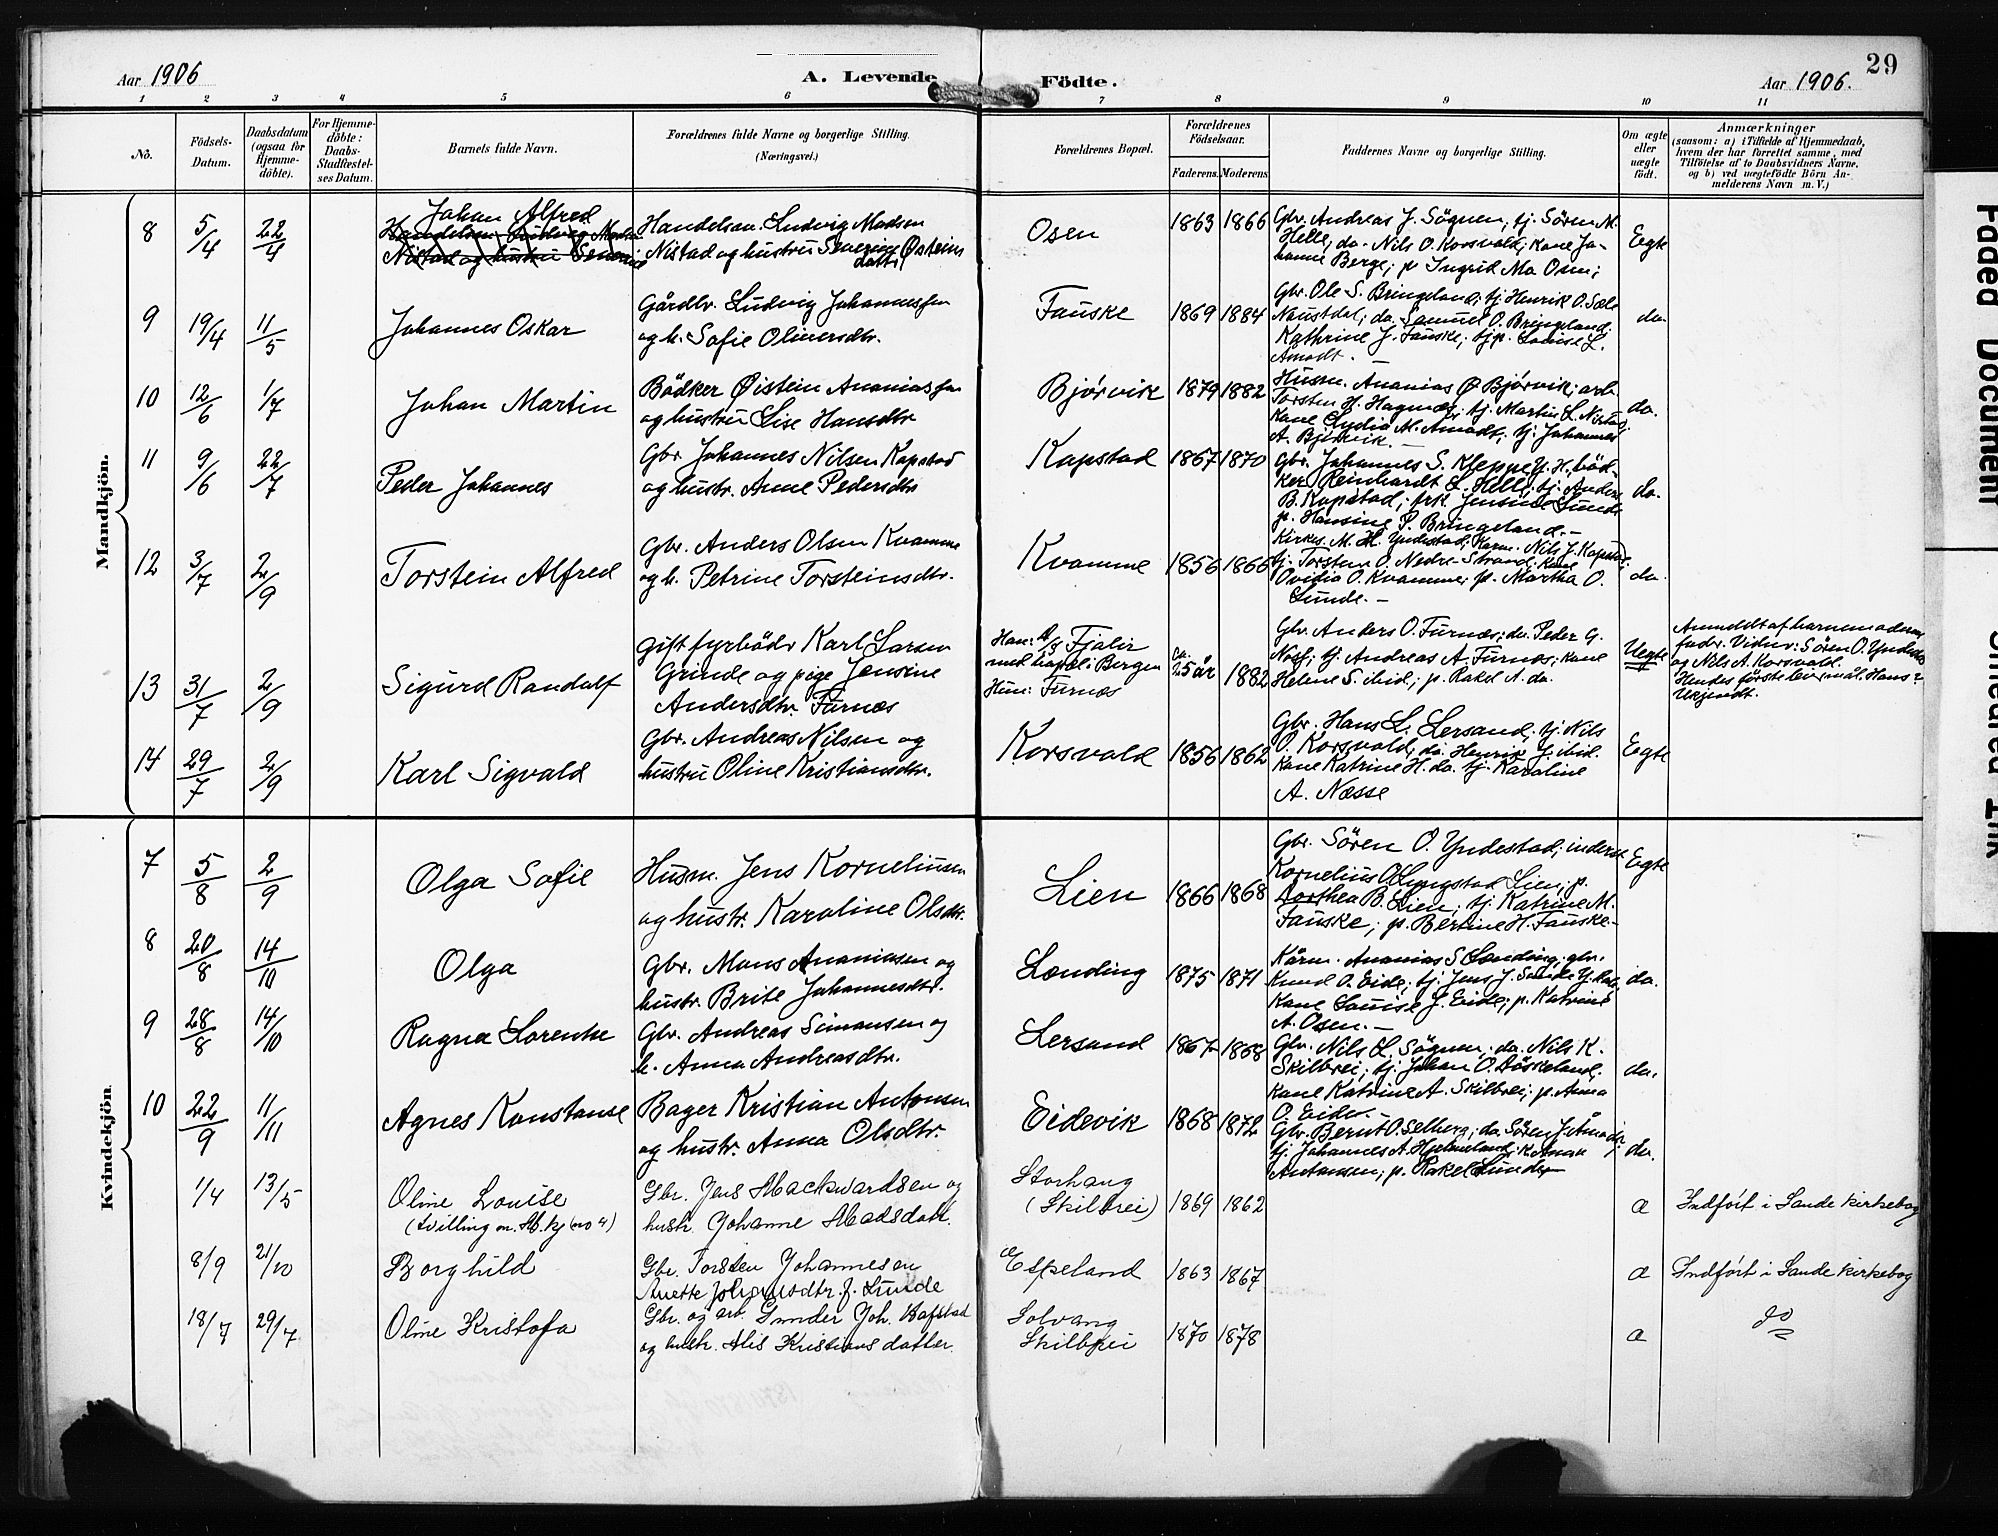 29
Aar 1906
A. Levende Födte.
Aar 1906.
1 2 3 4 5 6 7 8 9 10 11
No.
Födsels-Datum.
Daabsdatum (ogsaa for Hjemme-döbte).
For Hjemme-döbte: Daabs-Stadfæstel-ses Datum.
Barnets fulde Navn.
Forældrenes fulde Navne og borgerlige Stilling. (Næringsvei.)
Forældrenes Bopæl.
Forældrenes Födselsaar.
Faderens. Moderens.
Faddernes Navne og borgerlige Stilling.
Om ægte eller uægte født.
Anmærkninger
(saasom: a) i Tilfælde af Hjemmedaab,
hvem der har forrettet samme, med
Tilföielse af to Daabsvidners Navne,
og b) ved uægtefödte Börn An-
melderens Navn m. V.)
Mandkjön.
8 5/4 22/4 Johan Alfred
Handelsm. Ludvig Madsen
Nistad og hustru Severine Østeins
datter
Osen 1863 1866
Gbr. Andreas J. Sögnen; tj. Sören M.
Helle; do. Nils O. Korsvold; kone Jo-
hanne Berge; p. Ingrid Ma Osen;
Egte
9 19/4 11/5 Johannes Oskar
Gårdbr. Ludvig Johannessen
og h. Sofie Oliversdtr.
Fauske 1869 1884
Gbr. Ole S. Bringeland; tj. Henrik O. Sele
Naustdal; do. Samuel O. Bringeland.
Kathrine J. Fauske; tjp. Lovise L.
Amodt. –
do.
10 12/6 1/7 Johan Martin
Bödker Øistein Ananiassen
og hustru Lise Hansdtr
Bjórvik 1879 1882
Husm. Ananias Ø Bjórvik; arb.
Torsten H. Hagnæs; tj. Martin L. Nistad;
kone Lydia M. Amodt; tj. Johannes
A. Bjórvik. –
do.
11 9/6 22/7 Peder Johannes
Gbr. Johannes Nilsen Kapstad
og hustr. Anne Pedersdtr
Kapstad 1867 1870
Gbr. Johannes S. Kleppe Y. H. böd-
ker Reinhardt L. Helle; tj. Anders
B. Kapstad; frk. Jensine Sunde
p. Hansine P. Bringeland. –
do.
12 3/7 2/9 Torstein Alfred
Gbr. Anders Olsen Kvamme
og h. Petrine Torsteinsdtr.
Kvamme 1856 1866
Kirkes. M. H. Yndestad; Karm. Nils J. Kapstad;
tj. Torsten O. Nedre-Strand; kone
Ovidia O. Kvamme; p. Martha O.
Sunde. –
do.
13 31/7 2/9 Sigurd Randulf
Gift fyrbödr Karl Larsen
Grinde og pige Jensine
Andersdtr. Furnæs
Han: D/S Fjalir
med bopæl i Bergen
Hun: Furnæs
ca. 25 år 1882
Gbr. Anders O. Furnæs; do. Peder G.
tj. Andreas A. Furnæs; kone
Helene S. ibid.; p. Rakel A. do.
Uegte
Anmeldt af barnemoderens
fadr. Vidnr: Sören O. Yndestad
og Nils A. Korsvold.
Hendes första leiermål. Hans?
Ukjendt.
14 29/7 2/9 Karl Sigvald
Gbr. Andreas Nilsen og
hustru Oline Kristiansdtr.
Korsvold 1856 1862
Gbr. Hans L. Lersand, tj. Nils
O. Korsvold; do. Henrik J. ibid.
kone Katrine H. do. tj. Karoline
A. Næsse
Egte
Kvindekjön
7 5/8 2/9 Olga Sofie
Husm. Jens Korneliusen
og hustr. Karoline Olsdtr.
Lien 1866 1868
Gbr. Sören O. Yndestad; inderst
Kornelius O Lyngstad Lien; p.
Dorthea B. Lien; tj. Katrine M.
Fauske; p. Bertine H. Fauske –
Egte
8 20/8 14/10 Olga
Gbr. Mons Ananiasen og
hustr. Brite Johannesdtr.
Lending 1875 1871
Kårm. Ananias S Lending; gbr.
Knud O. Eide; tj. Jens J. Sande Y. H.
kone Lovise J. Eide; p. Katrine
A. Osen. –
do.
9 28/8 14/10 Ragna Lorentse
Gbr. Andreas Simonsen og
h. Anna Andreasdtr.
Lersand 1867 1868
Gbr. Nils L. Sögnen; do. Nils K.
Skilbrei; tj. Johan O. Döskeland.
kone Katrine A. Skilbrei; p. Anna
O. Eide.
do.
10 22/9 11/11 Agnes Konstanse
Bager Kristian Antonsen
og hustr. Anna Olsdtr.
Eidevik 1868 1872
Gbr. Bernt O. Selberg; do. Sören J. Åmodt;
tj. Johannes A. Hjelmeland; k. Anna
Antonsen; p. Rakel Sunde
do.
1/4 13/5 Oline Lovise
(tvilling m. M.kj no 4)
Gbr. Jens Mackvardsen og
hustr. Johanne Madsdatt.
Storhaug
(Skilbrei)
1869 1862 a Indfört i Sande kirkebog
8/9 21/10 Borghild
Gbr. Torsten Johannesen
Anette Johansdtr. f. Lunde
Espeland 1863 1867 a Indfört i Sande kirkebog
18/7 29/7 Oline Kristofa
Gbr. og arb. Gunder Joh. Hafstad
og hustr. Alis Kristiansdatter.
Solvang
Skilbrei
1870 1878 a do
Faded Document